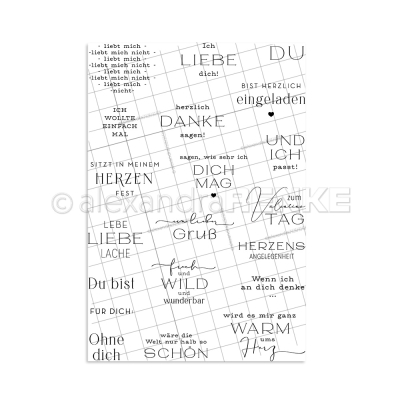 - liebt mich -
liebt mich nicht
- liebt mich -
liebt mich nicht
- liebt mich -
liebt mich nicht
- liebt mich
-nicht-
Ich
LIEBE
dich!
DU
BIST HERZLICH
eingeladen
ICH
WOLLTE
EINFACH
MAL
herzlich
DANKE
sagen!
UND
ICH
passt!
SITZT IN MEINEM
HERZEN
FEST
sagen, wie sehr ich
DICH
MAG
zum
Valentins
TAG
© alexandra RENKE
LEBE
LIEBE
LACHE
Gruß
HERZENS
ANGELEGENHEIT
Du bist
frech
und
WILD
und
wunderbar
Wenn ich
an dich denke
...
FÜR DICH:
wird es mir ganz
WARM
ums
Herz
Ohne
dich
wäre die
Welt nur halb so
SCHÖN